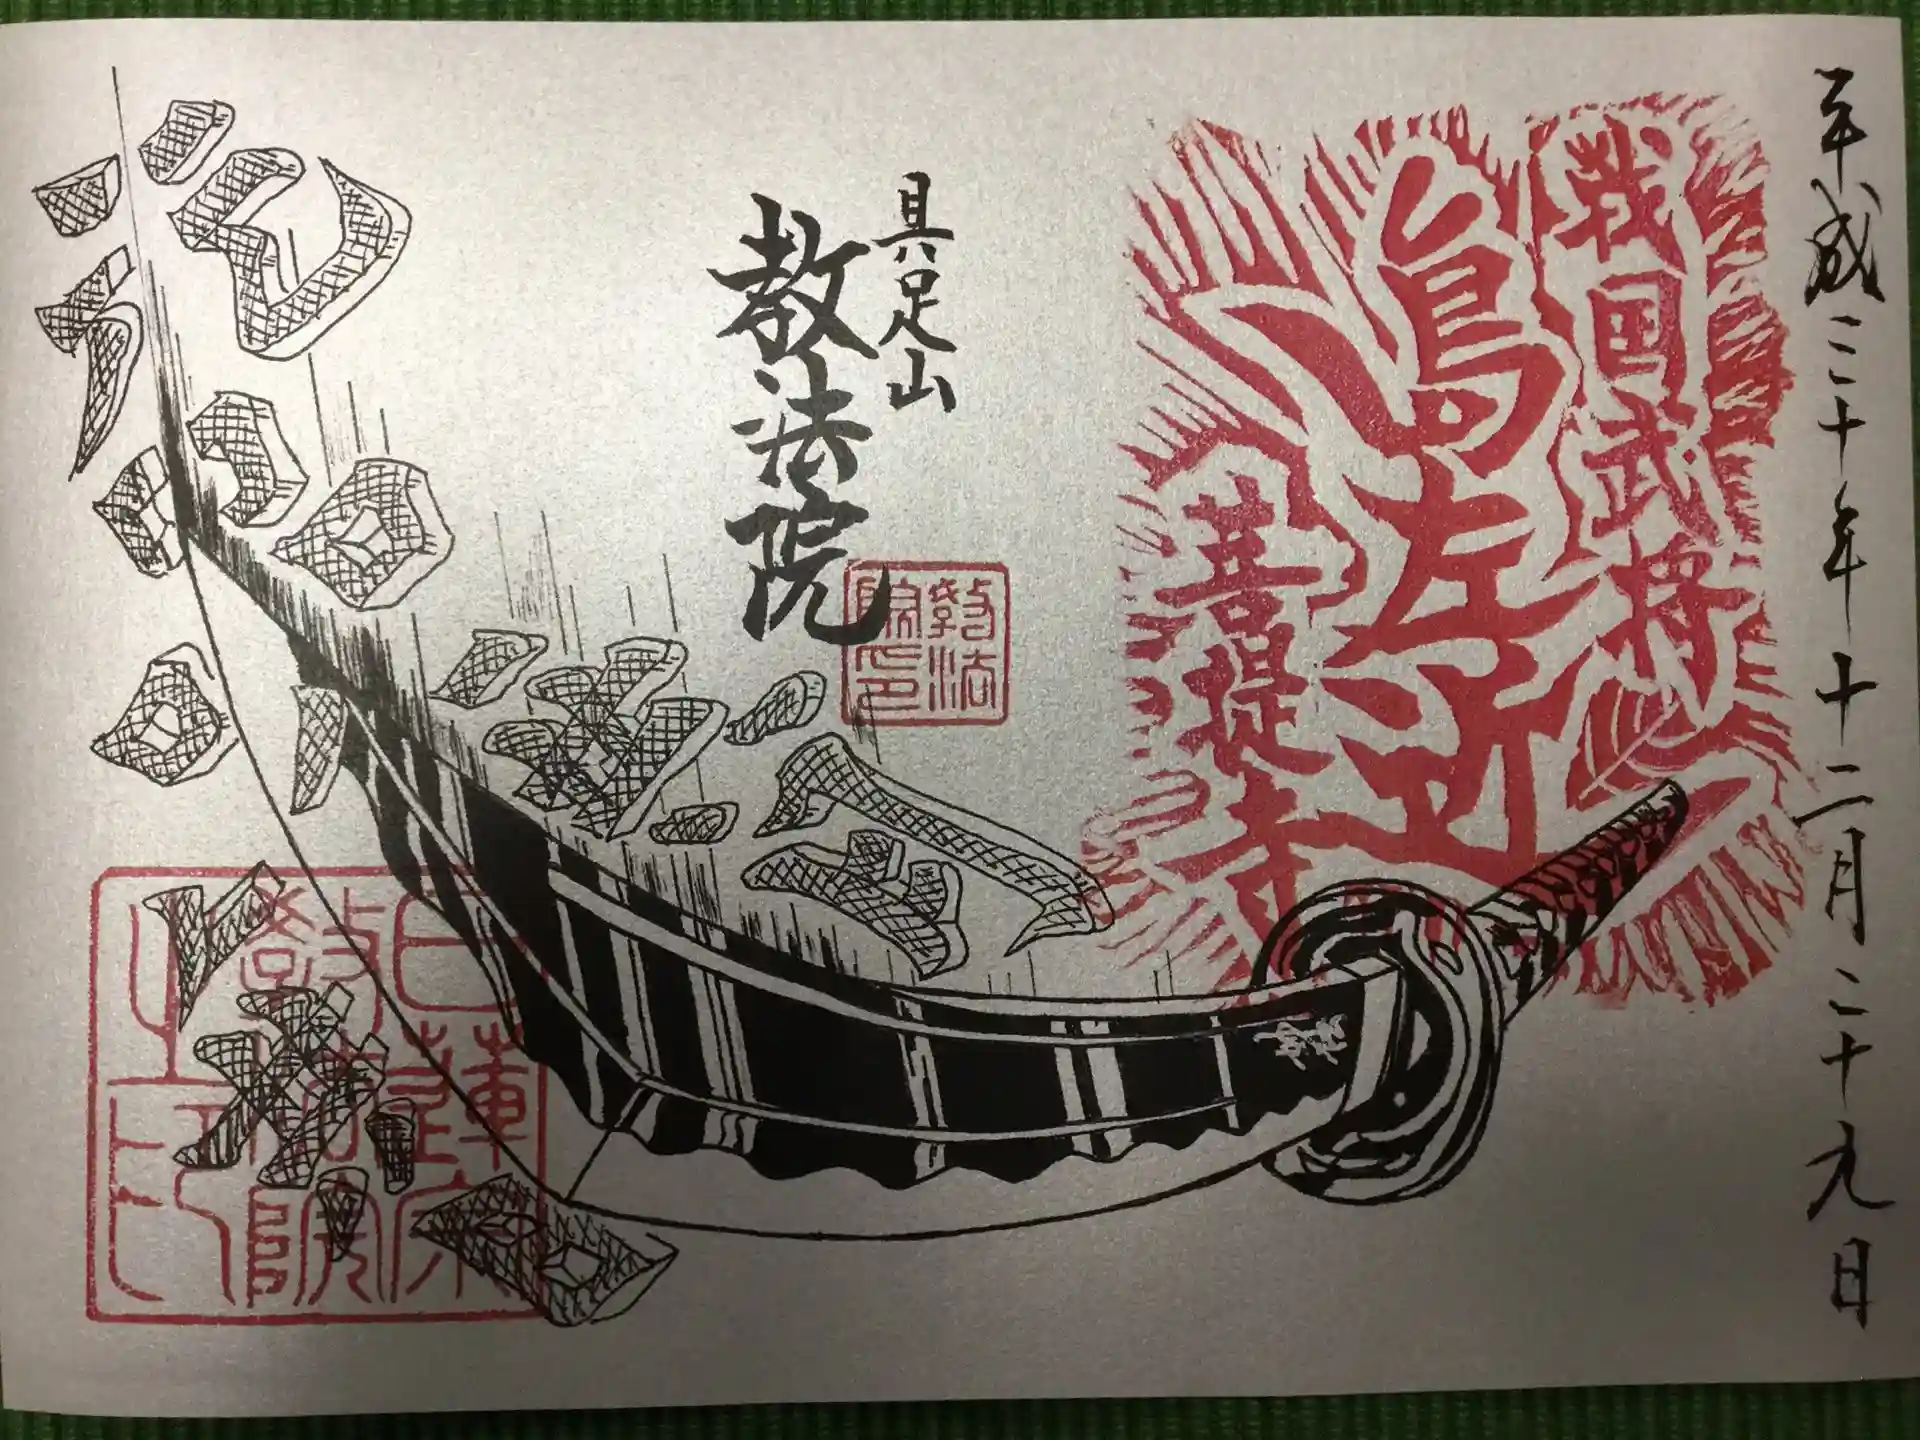 平成三十年十二月二十九日
戦国武将
島左近
菩提寺
具足山
教法院
教法
院印
日蓮宗
教法院
之印